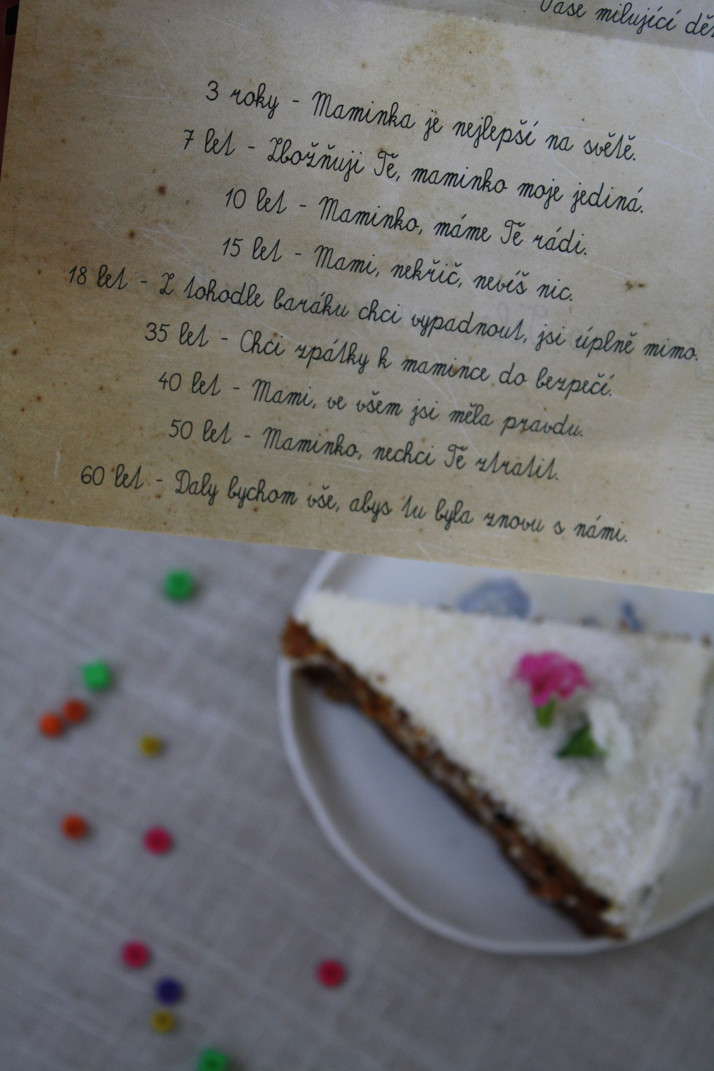 Vaše milující
3 roky - Maminka je nejlepší na světě.
7 let - Zbožňuji Tě, maminko moje jediná.
10 let - Maminko, máme Tě rádi.
15 let - Mami, nekřič, nevíš nic.
18 let - Z tohodle baráku chci vypadnout, jsi úplně mimo.
35 let - Chci zpátky k mamince do bezpečí.
40 let - Mami, ve všem jsi měla pravdu.
50 let - Maminko, nechci Tě ztratit.
60 let - Daly bychom vše, abys tu byla znovu s námi.